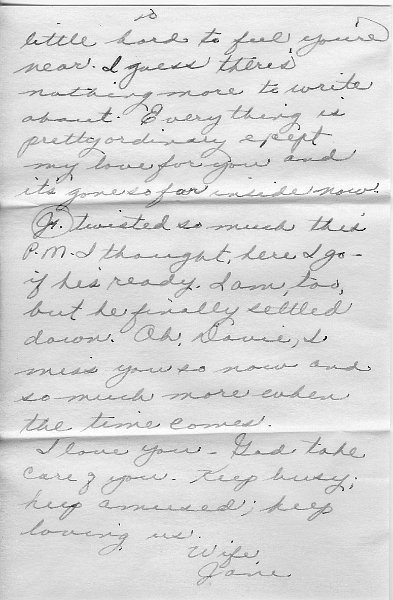 10
little hard to feel you're
near. I guess there's
nothing more to write
about. Everything is
pretty ordinary exept
my love for you and
it's gone so far inside now.
Jr. twisted so much this
P.M. I thought, here I go -
if he's ready. I am, too,
but he finally settled
down. Oh, Davie, I
miss you so now and
so much more when
the time comes.
I love you - God take
care of you. Keep busy;
keep amused; keep
loving us.
Wife
Jane